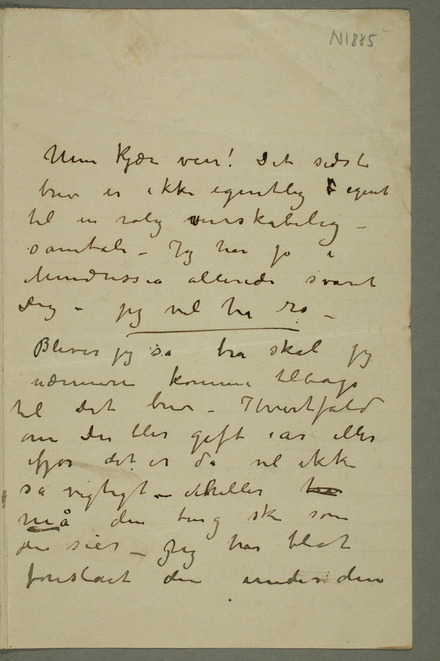 N1885
Min kjære ven! Det sidste
brev er ikke egentlig egent
til en rolig venskabelig –
samtale – Jeg har jo i
allerede svaret
Dig – jeg vil ha ro –
Bliver jeg så bra skal jeg
nærmere komme tilbage
til det brev – Hvertfald
om Du blir gift i år eller
ifjor det er da vel ikke
så vigtigt –
må den ting ske som
du sier – Jeg har blot
foreslaet den